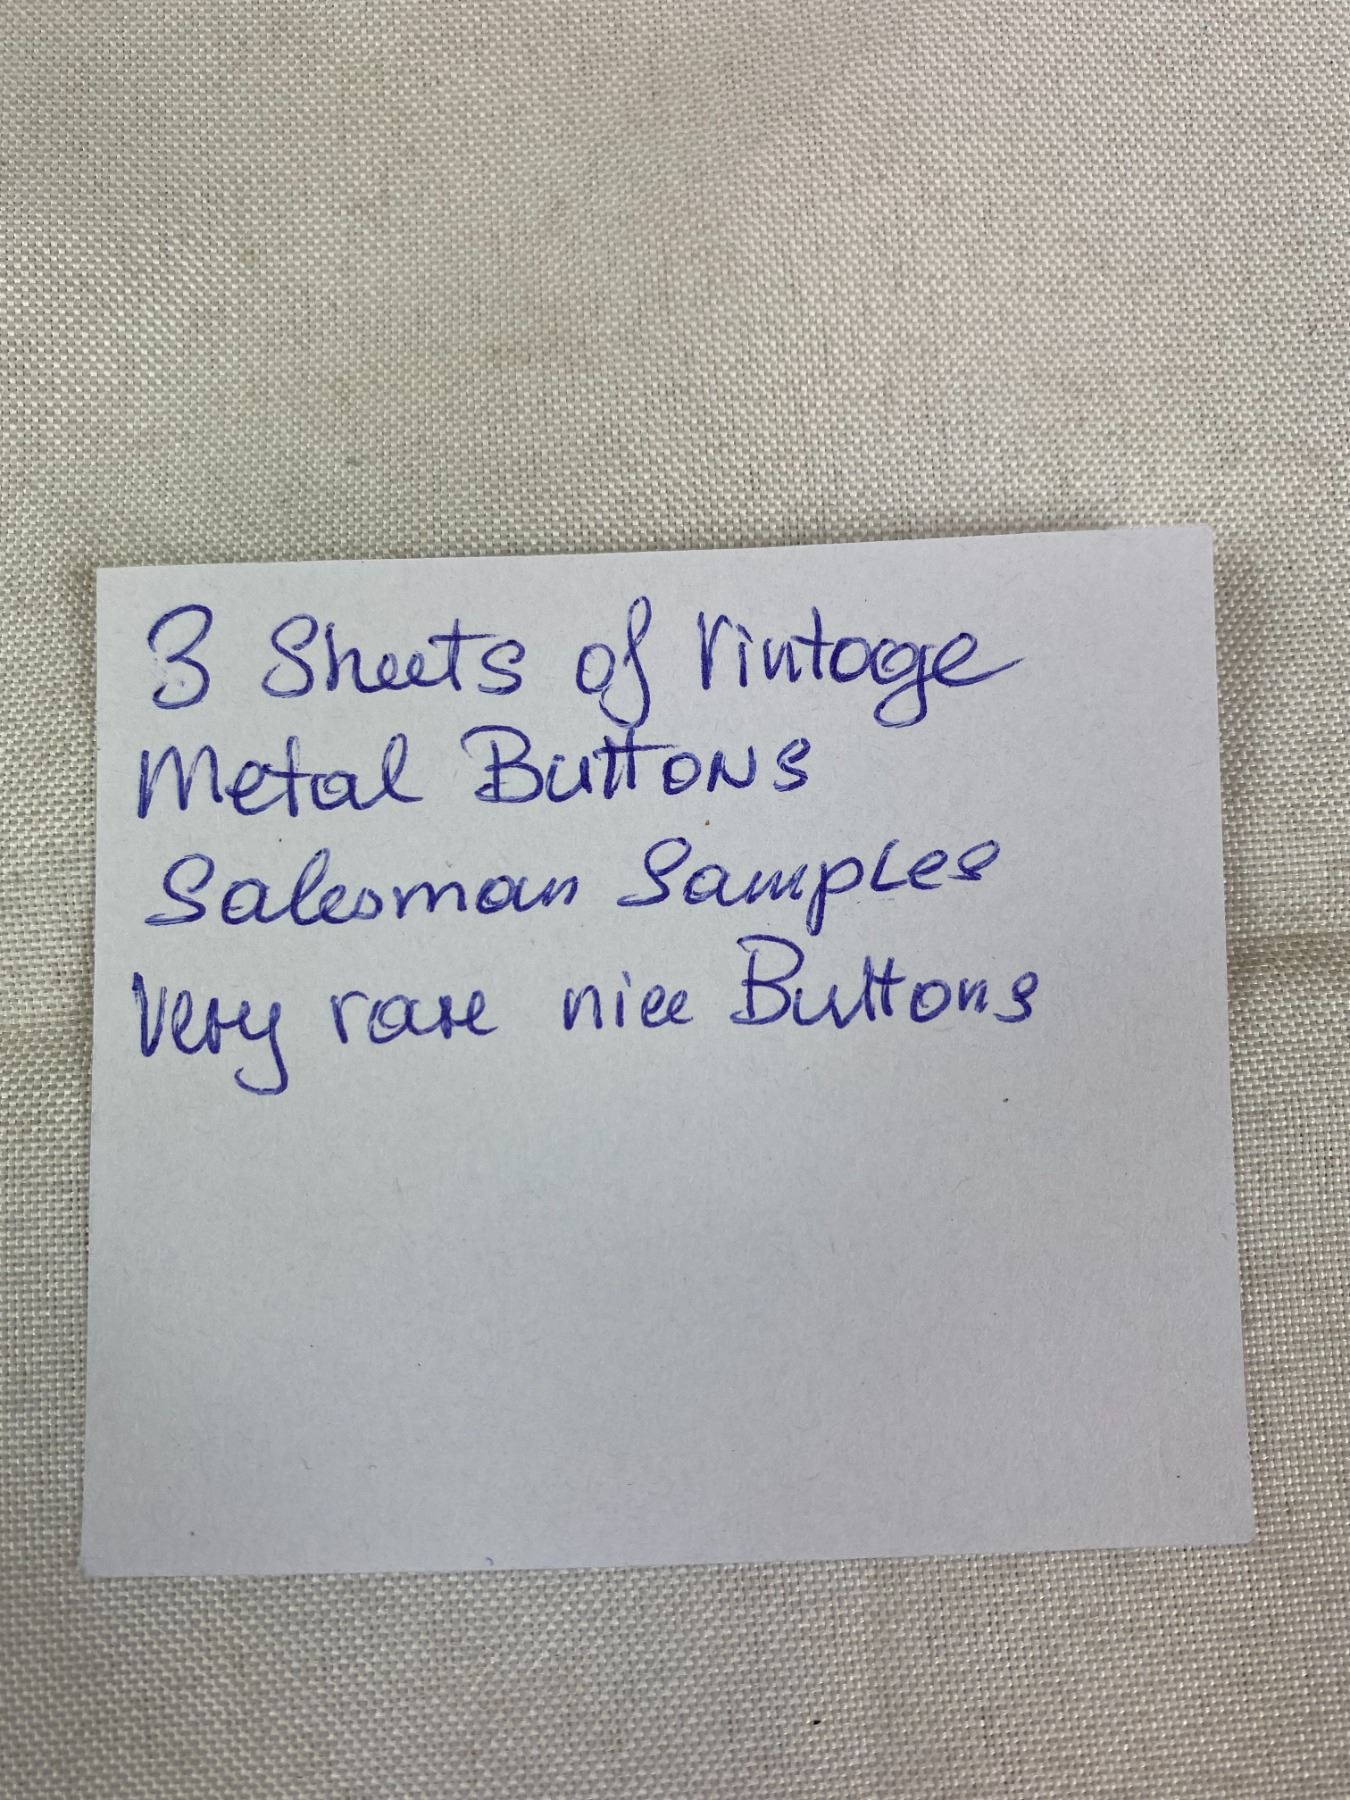 3 Sheets of Vintage
Metal Buttons
Salesman Samples
Very rare nice Buttons